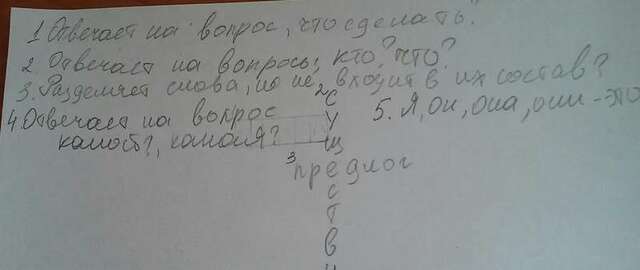 1 Отвечает на вопрос, что сделать?
2 Отвечает на вопросы, кто? что?
3. Разделяет слова, но не входит в их состав?
4. Отвечает на вопрос
какой?, какая?
5. Я, он, она, они - это
2 с
у
щ
3 предлог
с
т
в